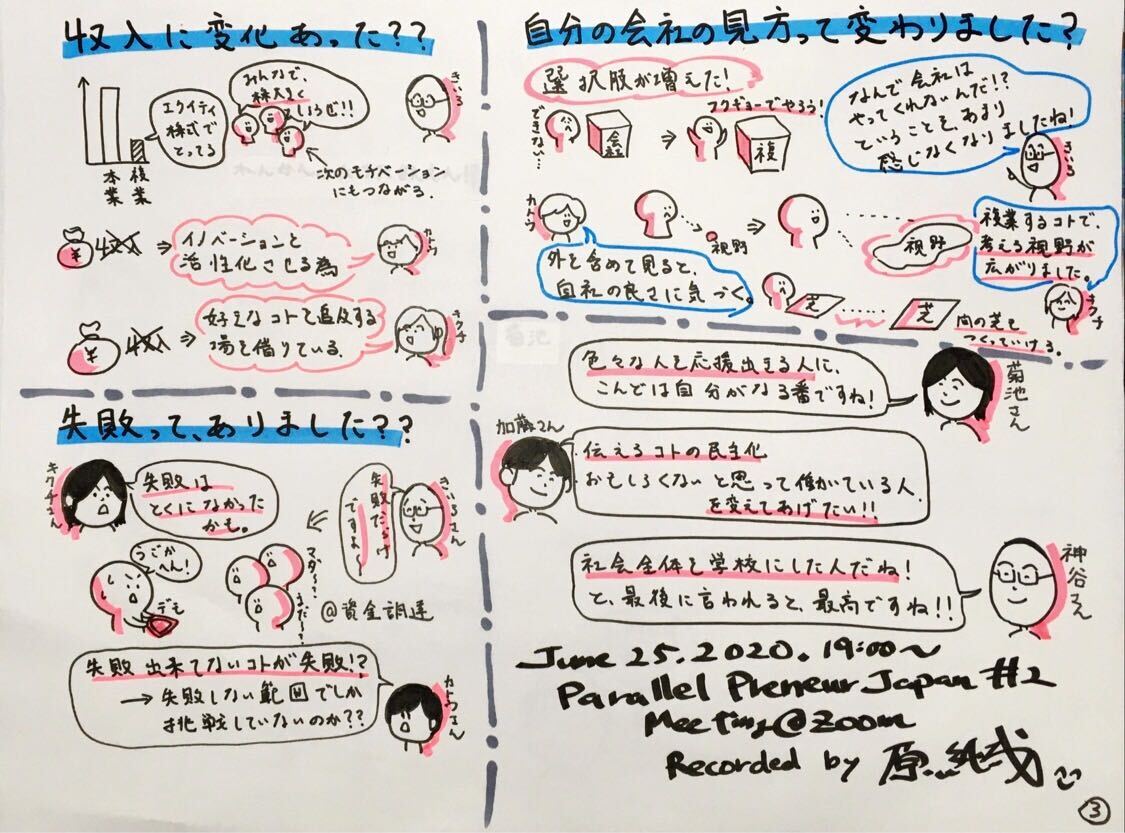 収入に変化あった??
本業
複業
エクイティ
株式で
とってる
みんなで、
株大きく
しようぜ!!
次のモチベーション
にもつながる.
¥
収入
⇒
イノベーションと
活性化させる為
カトウ
¥
収入
⇒
好きなコトを追及する
場を借りている.
キクチ
自分の会社の見方って変わりました?
選択肢が増えた!
できない…
会社
フクギョーでやろう!
複
なんで会社は
やってくれないんだ!?
ということを、あまり
感じなくなりましたね!
カトウ
外を含めて見ると、
自社の良さに気づく。
視野
視野
複業するコトで、
考える視野が
広がりました。
キクチ
芝
芝
間の芝を
つくっていける.
失敗って、ありました??
キクチさん
失敗は
とくになかった
かも。
うごか
へん!
デモ
失敗だらけ
ですよ〜
@資金調達
失敗出来てないコトが失敗!?
→失敗しない範囲でしか
挑戦していないのか??
カトウさん
色々な人を応援出きる人に、
こんどは自分がなる番ですね!
菊池さん
加藤さん
伝えるコトの民主化
おもしろくないと思って働がている人.
を変えてあげたい!!
社会全体を学校にした人だね!
と、最後に言われると、最高ですね!!
神谷さん
June 25.2020.19:00~
Parallel Preneur Japan #2
Meeting@Zoom
Recorded by 原
3